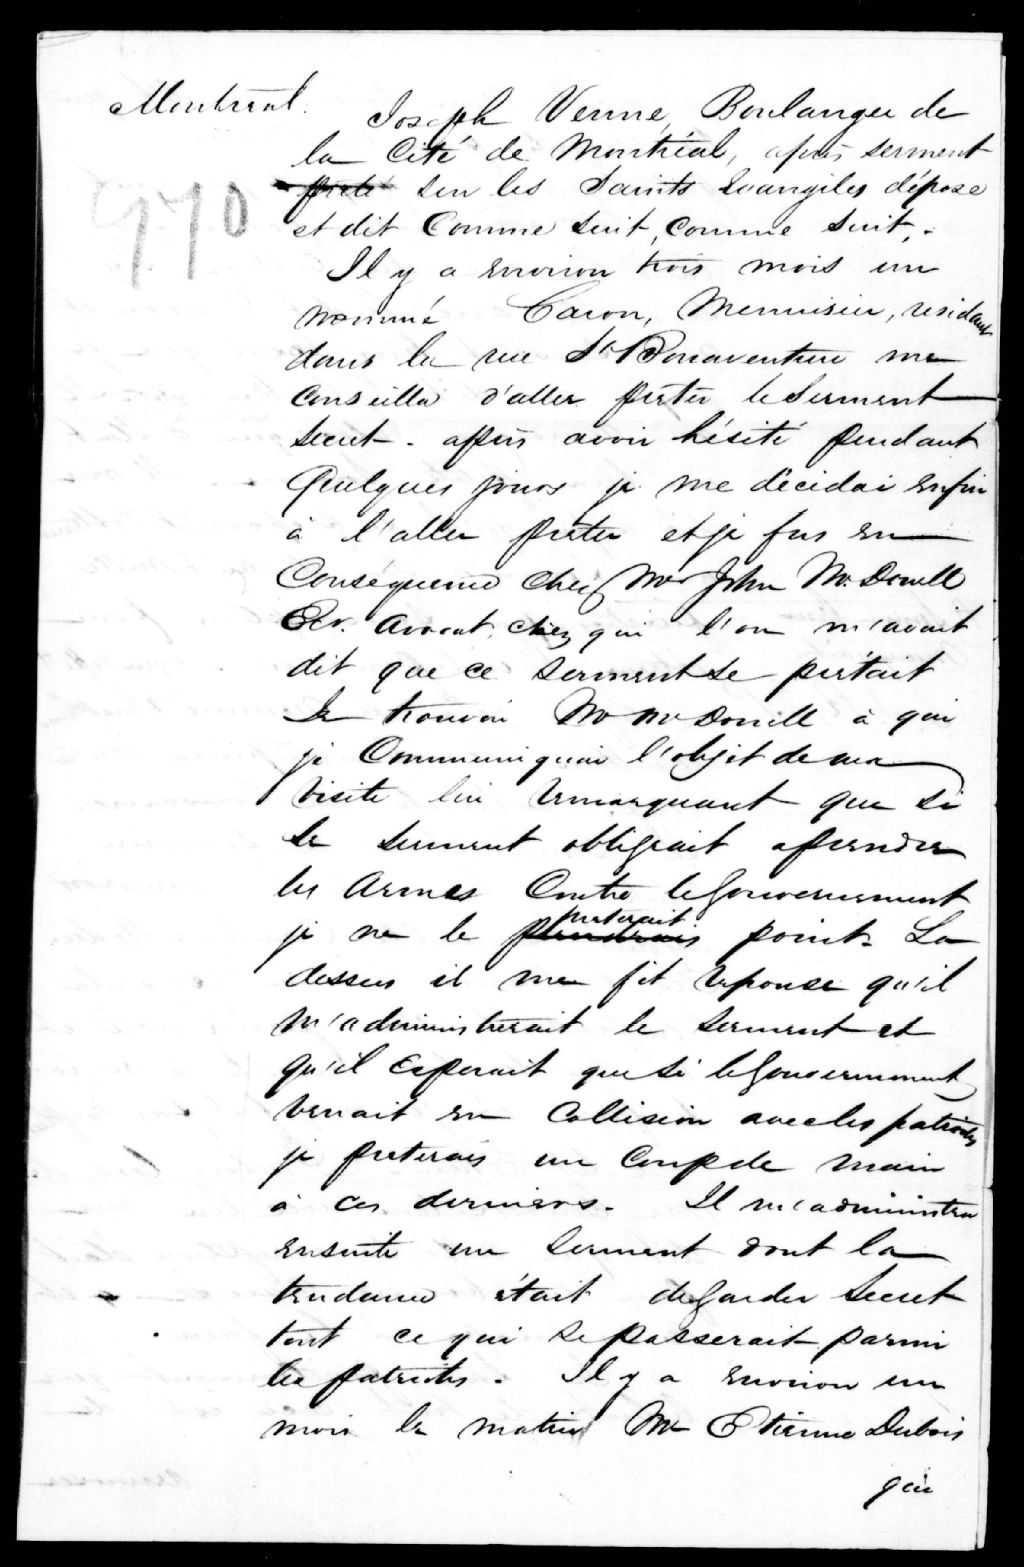 Montreal.
Joseph Venne, Boulanger de
la Cité de Montréal, après serment
preté sur les Saints Evangiles dépose
et dit Comme suit, comme suit,.
770
Il y a environ trois mois un
nommé Caron, Menuisier, residant
dans la rue St Bonaventure me
conseilla d'aller preter le Serment
secret. après avoir hésité pendant
quelques jours je me décidai enfin
à l'aller preter et je fus en
Conséquence chez Mr John McDonell
Ecr. Avocat, chez qui l'on m'avait
dit que ce serment se prétait
Je trouvai Mr McDonell à qui
je Communiquai l'objet de ma
visite lui remarquant que si
le serment obligeait a prendre
les Armes Contre le Gouvernement
je ne le prendrais preterait point. La
dessus il me fit réponse qu'il
m'administrerait le serment et
qu'il Esperait que si le Gouvernement
venait en Collision avec les patriotes
je preterais un Coup de main
à ces derniers. Il m'administra
ensuite un serment dont la
tendance était de Garder secret
tout ce qui se passerait parmi
les patriotes. Il y a environ un
mois le matin Mr Etienne Dubois
qui